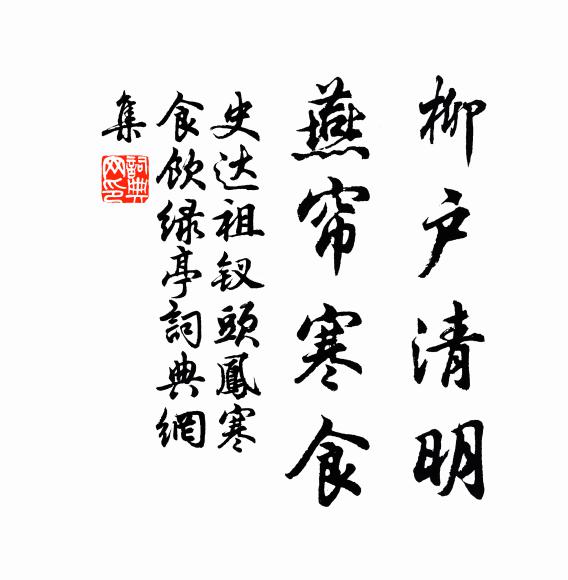 柳户清明
燕帘寒食
史达祖钗頭鳳寒
食飲绿亭詞典網
集
詞典网印